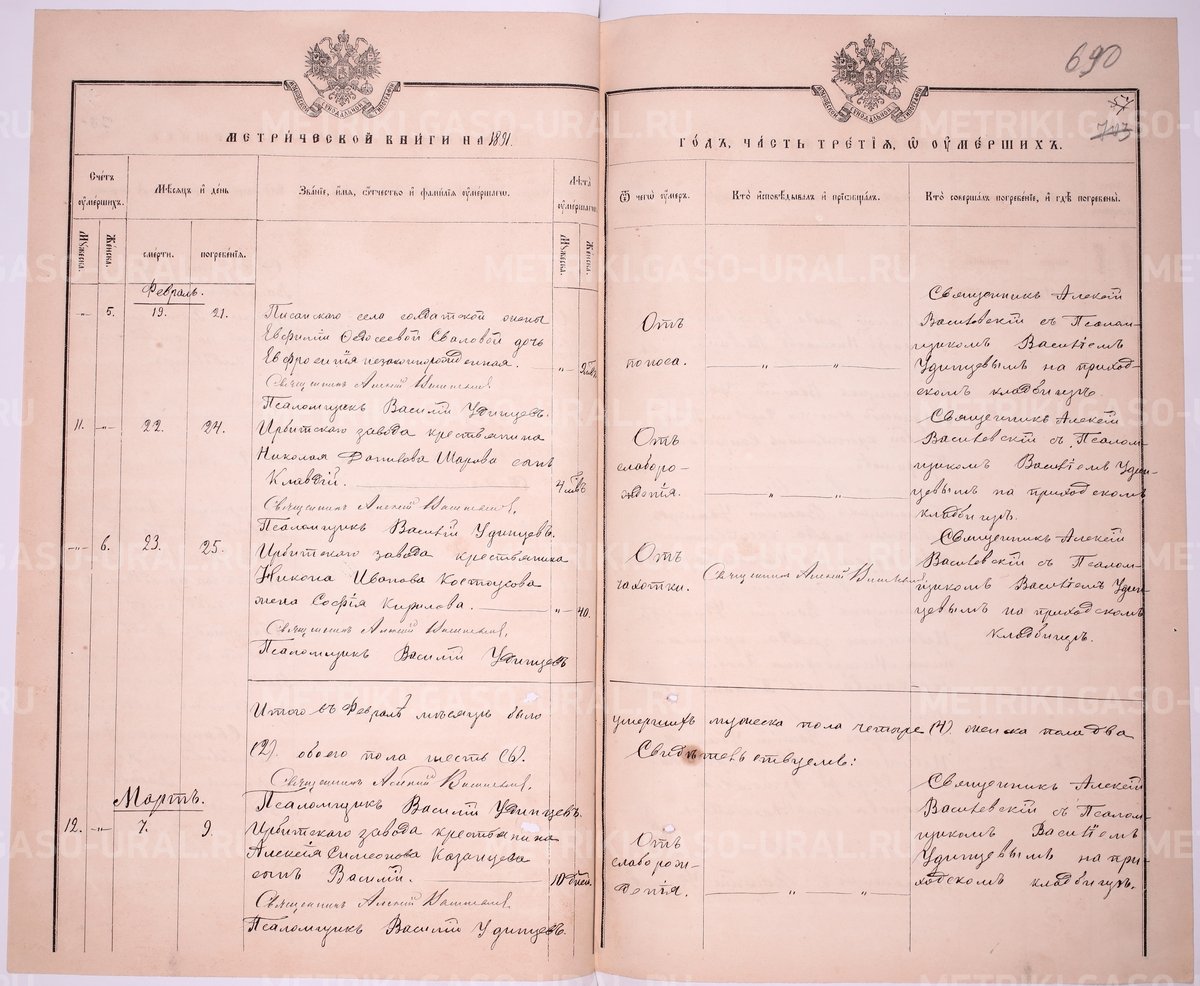 690
57
703
МЕТРИ́ЧЕСКОЙ КНИ́ГИ НА 1891.
ГО́ДЪ, ЧА́СТЬ ТРЕ́ТІѦ, Ѡ ОУ҆МЕ́РШИХЪ.
Сче́тъ оу҆ме́ршихъ.
Мꙋ́жеска.
Же́нска.
Мѣ́сѧцъ и҆ де́нь
сме́рти.
погребе́нїѧ.
Зва́нїе, и҆́мѧ, ѻ҆́тчество и҆ фами́лїѧ оу҆ме́ршагѡ.
Лѣ́та оу҆ме́ршагѡ.
Мꙋ́жеска.
Же́нска.
Ѿ чегѡ̀ оу҆́меръ.
Кто̀ и҆сповѣ́дывалъ и҆ прїѡбща́лъ.
Кто̀ соверша́лъ погребе́нїе, и҆ гдѣ̀ погребены̀.
Февраль.
-„- 5. 19. 21.
Писанскаго села солдатской жены
Евфиміи Ѳедосеевой Сваловой дочь
Евфросинія незаконнорожденная.
Священникъ Алексій
Псаломщикъ Василій Удинцевъ.
Отъ
поноса.
Священникъ Алексій
Василевскій съ Псалом-
щикомъ Василіемъ
Удинцевымъ на приход-
скомъ кладбищѣ.
11. -„- 22. 24.
Ирбитскаго завода крестьянина
Николая Данилова Шарова сынъ
Клавдій.
4
Священникъ Алексій
Псаломщикъ Василій Удинцевъ.
Отъ
слаборо-
жденія.
Священникъ Алексій
Василевскій съ Псалом-
щикомъ Василіемъ Удин-
цевымъ на приходскомъ
кладбищѣ.
-„- 6. 23. 25.
Ирбитскаго завода крестьянина
Никона Иванова Костоусова
жена Софія Кирилова. „ 40.
Священникъ Алексій
Псаломщикъ Василій Удинцевъ
Отъ
чахотки.
Священникъ Алексій
Священникъ Алексій
Василевскій съ Псалом-
щикомъ Василіемъ Удин-
цевымъ на приходскомъ
кладбищѣ.
Итого въ Февралѣ мѣсяцѣ было
умершихъ мужеска пола четыре (4). женска пола два
(2). обоего пола шесть (6).
Свидѣтельствуемъ:
Священникъ Алексій
Псаломщикъ Василій Удинцевъ.
Мартъ.
12. -„- 7. 9.
Ирбитскаго завода крестьянина
Алексія Симеонова Казанцева
сынъ Василій. 10 дней.
Священникъ Алексій
Псаломщикъ Василій Удинцевъ.
Отъ
слаборож-
денія.
Священникъ Алексій
Василевскій съ Псалом-
щикомъ Василіемъ
Удинцевымъ на при-
ходскомъ кладбищѣ.
METRIKI.GASO-URAL.RU